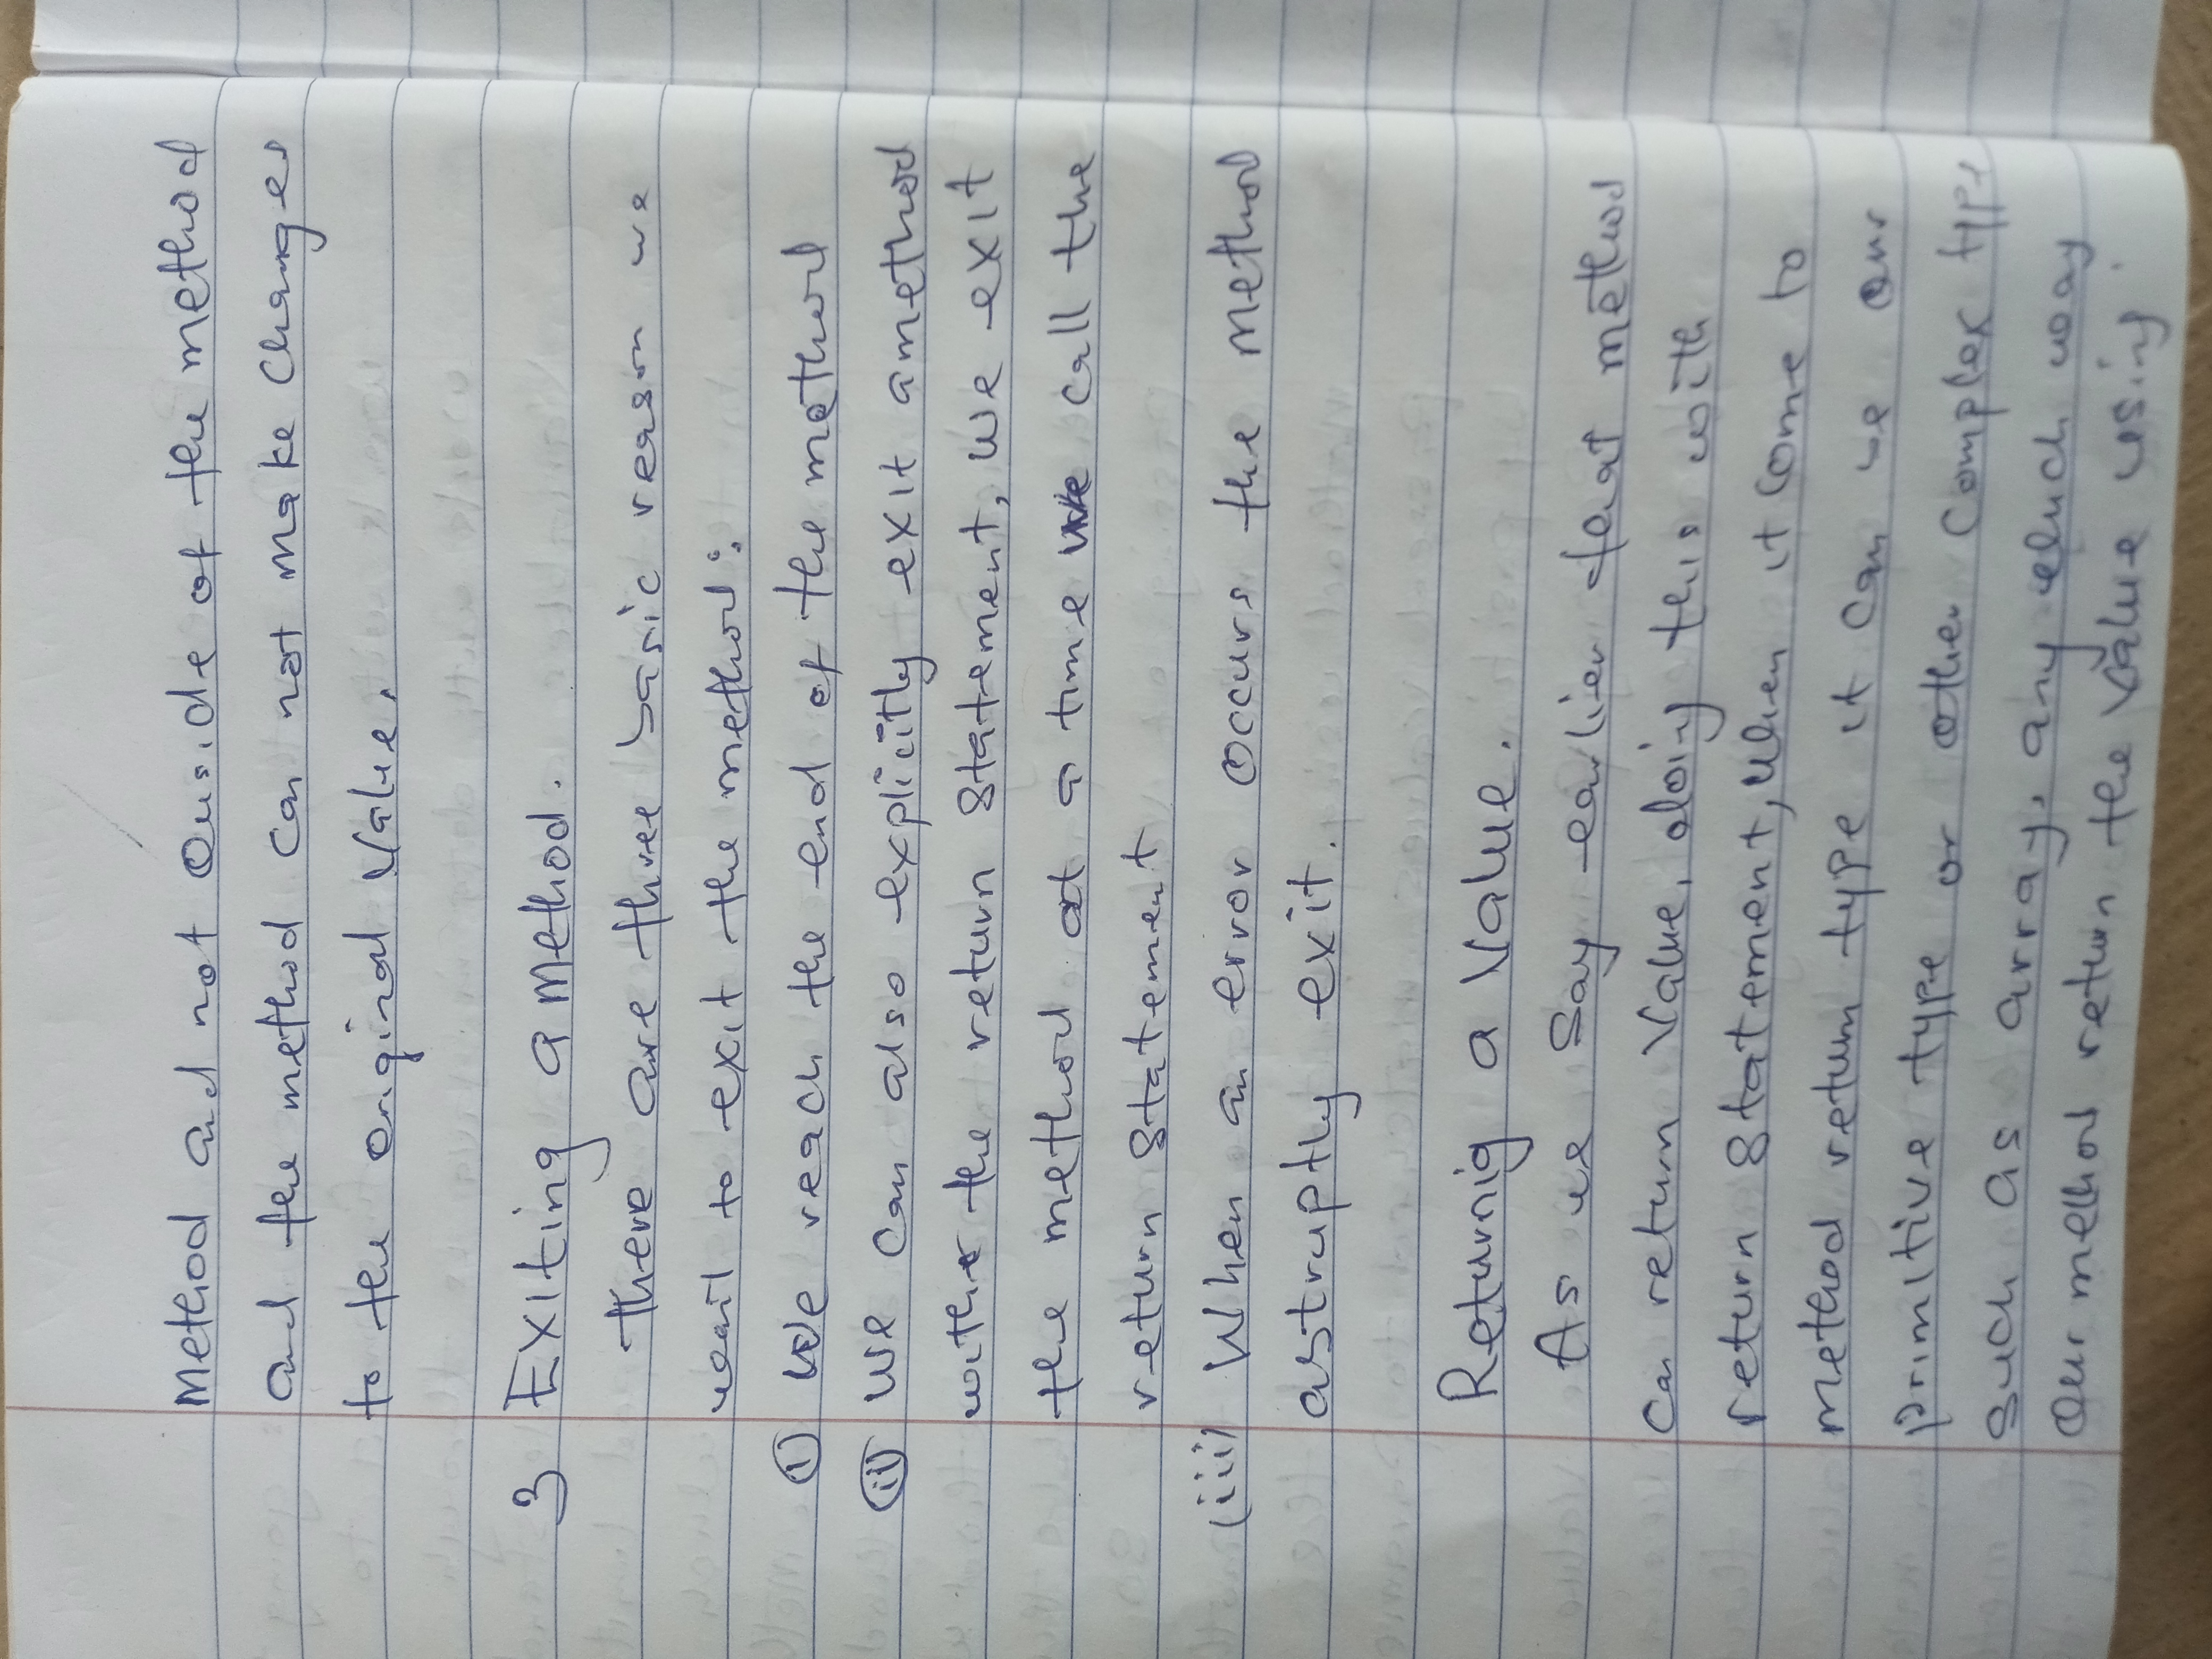 Method and not ouside of the method
and the method can not make changes
to the original value.
3 Exiting a method.
there are three basic reason we
wait to exit the method:
(i) we reach the end of the method
(ii) we can also explicitly exit a method
withe the return statement, we exit
the method at a time we call the
return statement
(iii) When an error occurs the method
abstruptly exit.
Returnig a value.
As we say earlier that method
can return value, doing this with
return statement, when it come to
method return type it can we our
primitive type or other complex type
such as array, any such way
our method return the value using